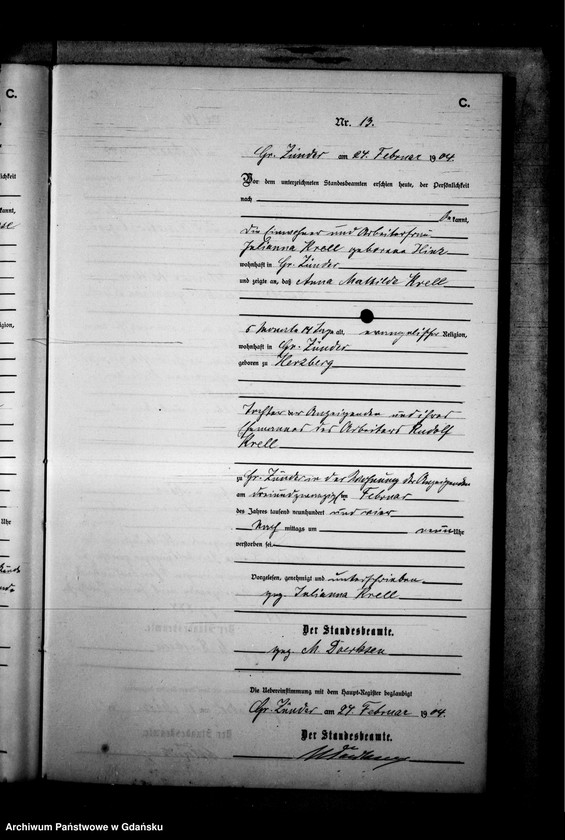 C.
C.
Nr. 13.
Gr. Zünder am 24. Februar 1904.
Vor dem unterzeichneten Standesbeamten erschien heute, der Persönlichkeit
nach
bekannt,
die Einwohner und Arbeiterfrau
Julianna Krell geborene Hinz
wohnhaft in Gr. Zünder
und zeigte an, daß Anna Mathilde Krell
5 Monate 14 Tage alt, evangelischer Religion,
wohnhaft in Gr. Zünder
geboren zu Herzberg
Tochter der Anzeigenden und ihres
Ehemannes des Arbeiters Rudolf
Krell
zu Gr. Zünder in der Wohnung der Anzeigenden
am dreiundzwanzigsten Februar
des Jahres tausend neunhundert und vier
Nach mittags um neun Uhr
verstorben sei.
Vorgelesen, genehmigt und unterschrieben
gez. Julianna Krell
Der Standesbeamte.
gez. M. Doerksen
Die Uebereinstimmung mit dem Haupt-Register beglaubigt
Gr. Zünder am 24. Februar 1904.
Der Standesbeamte.
Archiwum Państwowe w Gdańsku